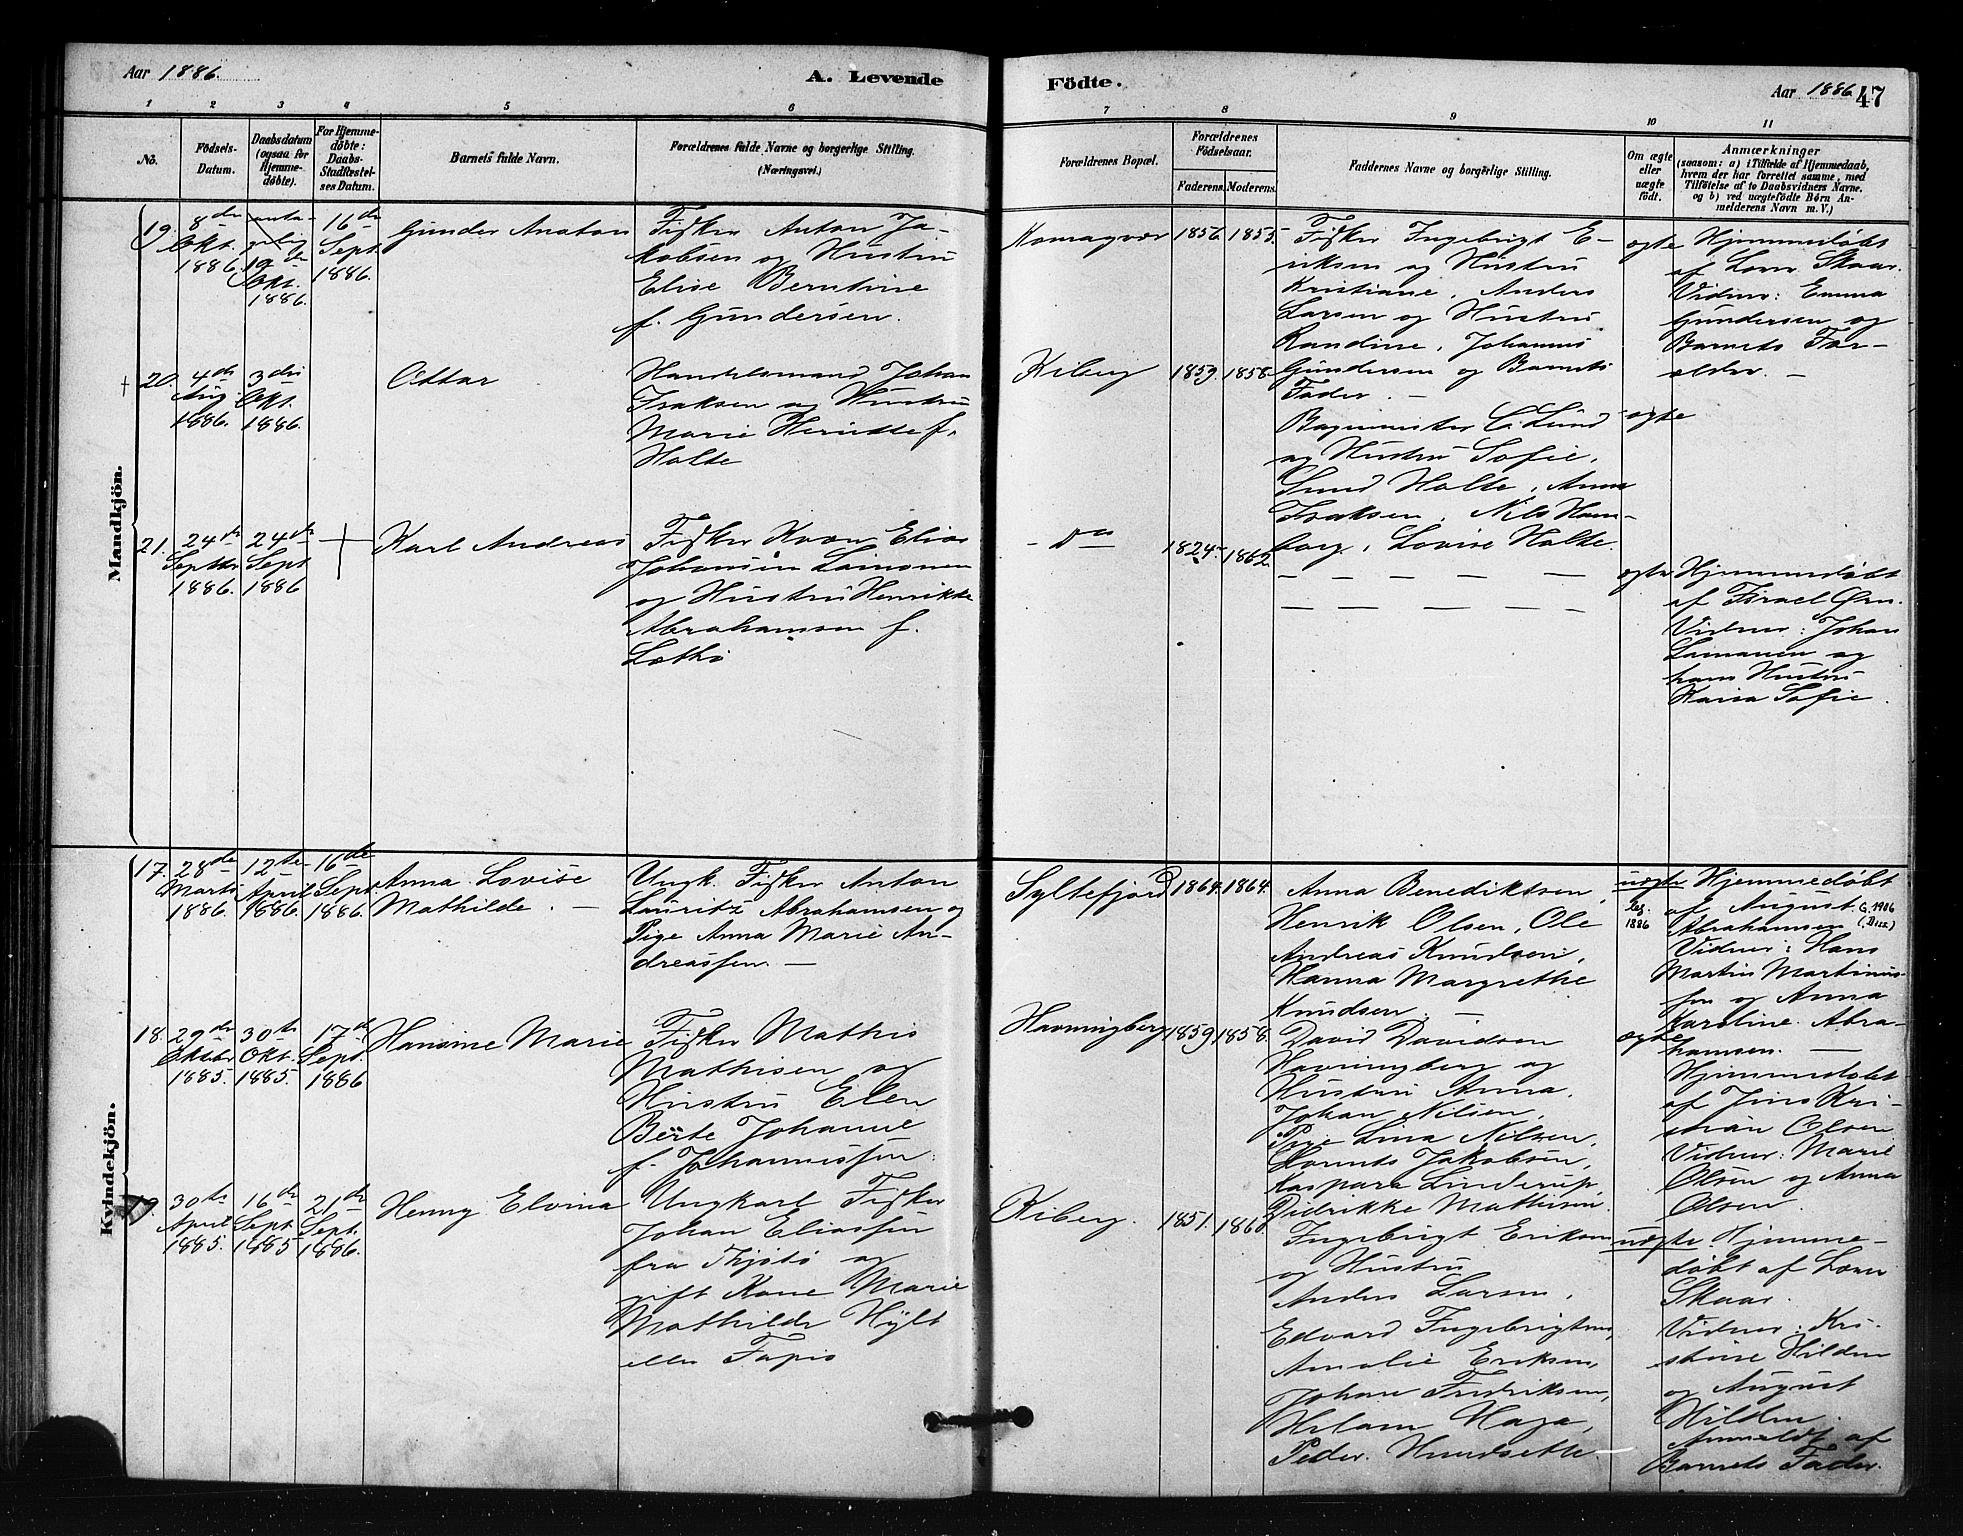 Aar 1886.
A. Levende
Födte.
Aar 1886
47
1 2 3 4 5 6
7 8 9 10 11
No.
Födsels-
Datum.
Daabsdatum
(ogsaa for
Hjemme-
döbte).
For Hjemme-
döbte:
Daabs-
Stadfæstel-
ses Datum.
Barnets fulde Navn.
Forældrenes fulde Navne og borgerlige Stilling.
(Næringsvei.)
Forældrenes Bopæl.
Forældrenes
Födselsaar.
Faderens.
Moderens.
Faddernes Navne og borgerlige Stilling.
Om ægte
eller
uægte
födt.
Anmærkninger
(saasom: a) i Tilfælde af Hjemmedaab,
hvem der har forrettet samme, med
Tilföielse af to Daabsvidners Navne.
og b) ved uægtefödte Börn An-
melderens Navn m. V.)
Mandkjön.
19.
8de
Okt.
1886.
19de
Okt.
1886.
16de
Sept
1886.
Gunder Anaton
Fisker Anton Ja-
kobsen og Hustru
Elise Berntine
f. Gundersen.
Komagvær
1856.
1855.
Fisker Ingebrigt E-
riksen og Hustru
Kristiane, Anders
Larsen og Hustru
Randine, Johannes
Gundersen og Barnets
Fader. —
ægte
Hjemmedøbt
af Lærer Skaar.
Vidner: Emma
Gundersen og
Barnets For-
ældre. —
†
20.
4de
Aug.
1886.
3die
Okt.
1886.
Ottar
Handelsmand Johan
Isaksen og Hustru
Marie f.
Holte
Kiberg
1859.
1858.
C. Lund
og Hustru Sofie,
Holte, Anna
Isaksen, Nils Ham-
borg, Lovise Holte.
ægte
21.
24de
Septbr
1886.
24de
Sept
1886
†
Karl Andreas
Fisker Kvæn Elias
Johansen Lamanen
og Hustru Henrikke
Abrahamsen f.
- Do
1824.
1862.
— — — — —
— — — — —
ægte
Hjemmedøbt
af Israel Ørn.
Vidner: Johan
Lamanen og
hans Hustru
Kaisa Sofie.
Kvindekjön.
17.
28de
Marts
1886.
12te
April
1886.
16de
Sept.
1886.
Anna Lovise
Mathilde. —
Ungk. Fisker Anton
Lauritz Abrahamsen og
Pige Anna Marie An-
dreassen. —
Syltefjord
1864.
1864.
Anna Benediktsen,
Henrik Olsen, Ole
Andreas Knudsen,
Hanna Margrethe
Knudsen. —
uægte
leg.
1886
Hjemmedøbt
af August
Abrahamsen
Vidner: Hans
Martin Martinus-
sen og Anna
Karoline Abra-
hamsen. —
18.
29de
Oktbr
1885.
30te
Okt.
1885.
17de
Sept.
1886
Hansine Marie
Fisker Mathis
Mathisen og
Hustru Elen
Berte Johanne
f. Johannessen.
Havningberg
1859.
1858.
David Davidsen
Havningberg og
Hustru Anna,
Johan Nilsen,
Pige Lina Nilsen,
Jakobsen,
Kaspara Linderup,
Didrikke Mathisen.
ægte
Hjemmedøbt
af Jens Kri-
stian Olsen
Vidner: Marie
Olsen og Anna
Olsen.
19.
30te
April
1885.
16de
Sept
1885
21de
Sept.
1886.
Henny Elvina
Ungkarl Fisker
Johan Eliassen
fra Tjøtø og
gift Kone Marie
Mathilde Hylt
eller Fapis
Kiberg.
1851.
1860
Ingebrigt Eriksen
og Hustru
Anders Larsen,
Edvard Ingebrigtsen,
Amalie Eriksen,
Johan Fredriksen,
Haga,
Peder
uægte
Hjemme-
døbt af Lærer
Skaar.
Vidner: Kri-
stine Hilden
og August
Hilden.
Anmeldt af
Barnets Fader.